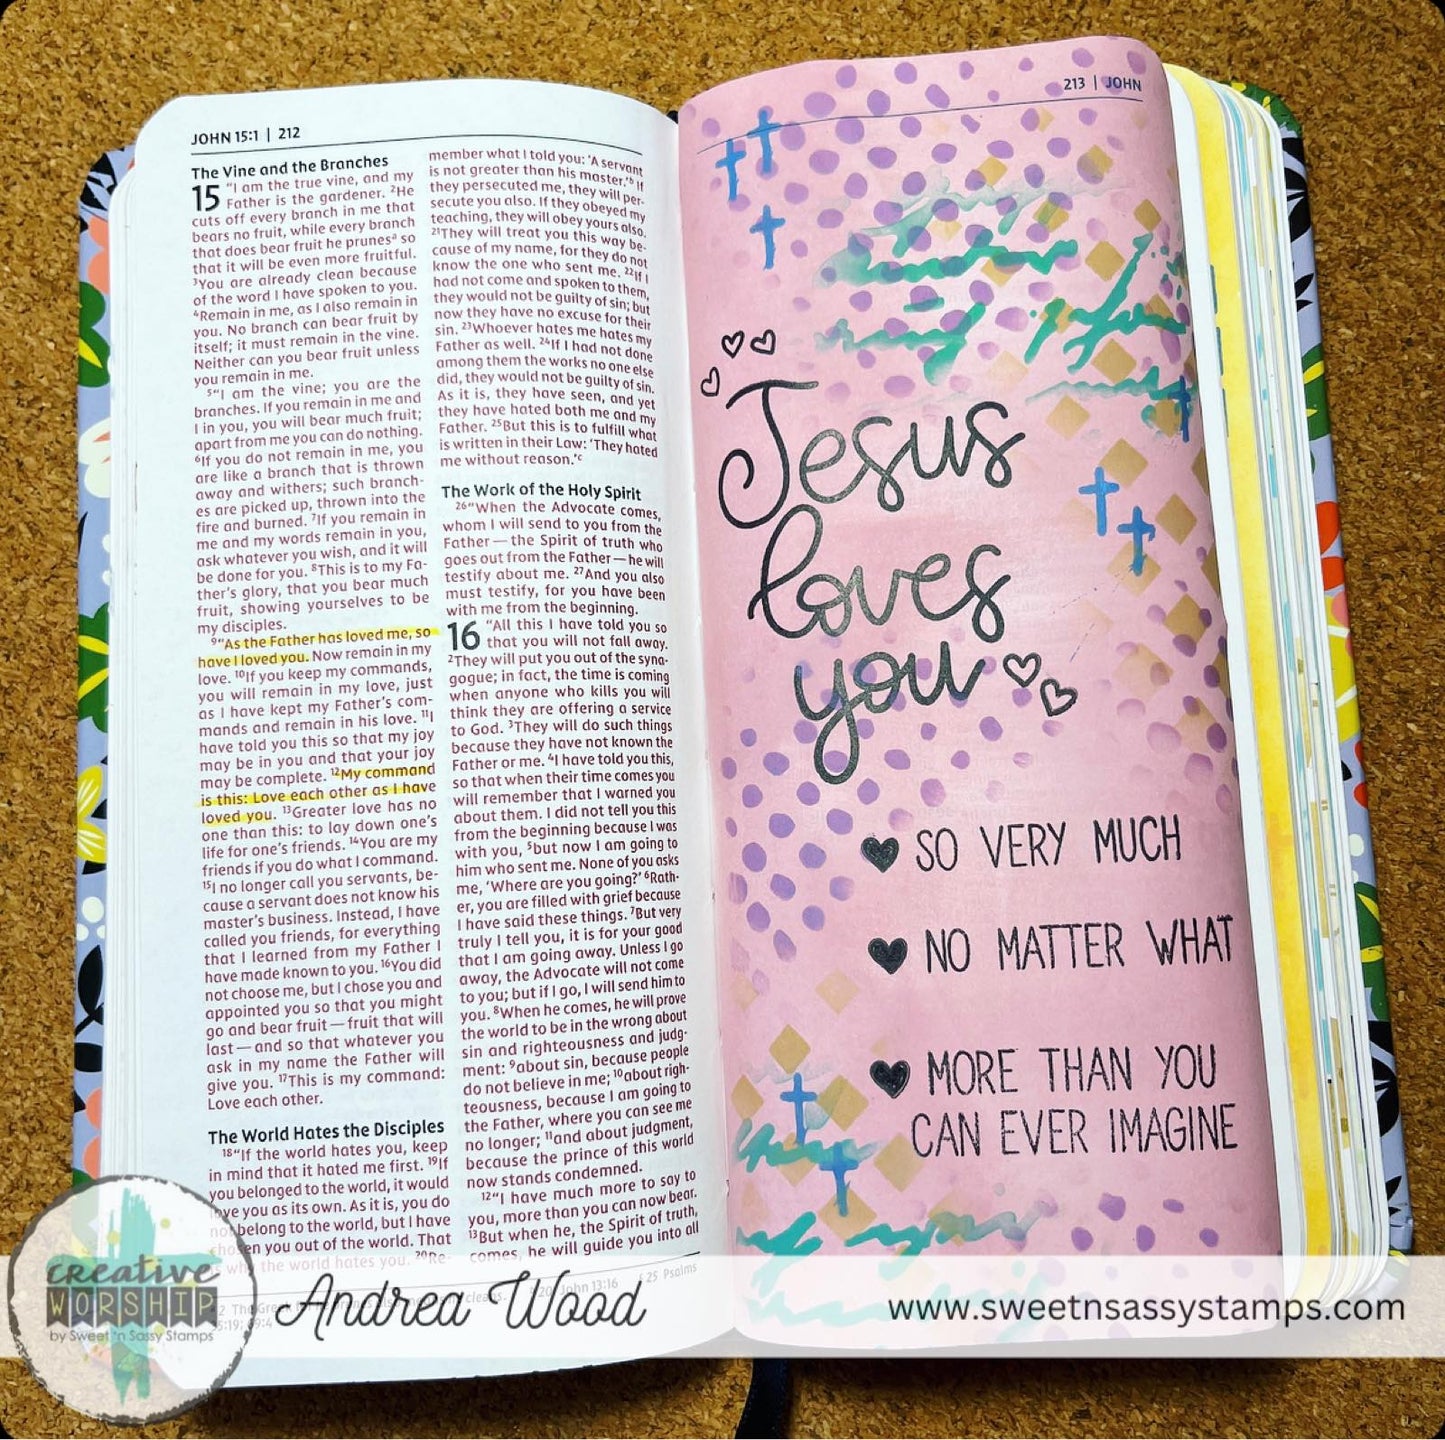 JOHN 15:1 | 212
The Vine and the Branches
15 "I am the true vine, and my
Father is the gardener. 2He
cuts off every branch in me that
bears no fruit, while every branch
that does bear fruit he prunesa so
that it will be even more fruitful.
3You are already clean because
of the word I have spoken to you.
4Remain in me, as I also remain in
you. No branch can bear fruit by
itself; it must remain in the vine.
Neither can you bear fruit unless
you remain in me.
5"I am the vine; you are the
branches. If you remain in me and
I in you, you will bear much fruit;
apart from me you can do nothing.
6If you do not remain in me, you
are like a branch that is thrown
away and withers; such branch-
es are picked up, thrown into the
fire and burned. 7If you remain in
me and my words remain in you,
ask whatever you wish, and it will
be done for you. 8This is to my Fa-
ther's glory, that you bear much
fruit, showing yourselves to be
my disciples.
9"As the Father has loved me, so
have I loved you. Now remain in my
love. 10If you keep my commands,
you will remain in my love, just
as I have kept my Father's com-
mands and remain in his love. 11I
have told you this so that my joy
may be in you and that your joy
may be complete. 12My command
is this: Love each other as I have
loved you. 13Greater love has no
one than this: to lay down one's
life for one's friends. 14You are my
friends if you do what I command.
15I no longer call you servants, be-
cause a servant does not know his
master's business. Instead, I have
called you friends, for everything
that I learned from my Father I
have made known to you. 16You did
not choose me, but I chose you and
appointed you so that you might
go and bear fruit — fruit that will
last — and so that whatever you
ask in my name the Father will
give you. 17This is my command:
Love each other.
The World Hates the Disciples
18"If the world hates you, keep
in mind that it hated me first. 19If
you belonged to the world, it would
love you as its own. As it is, you do
not belong to the world, but I have
chosen you out of the world. That
is why the world hates you. 20Re-
member what I told you: 'A servant
is not greater than his master.'b If
they persecuted me, they will per-
secute you also. If they obeyed my
teaching, they will obey yours also.
21They will treat you this way be-
cause of my name, for they do not
know the one who sent me. 22If I
had not come and spoken to them,
they would not be guilty of sin; but
now they have no excuse for their
sin. 23Whoever hates me hates my
Father as well. 24If I had not done
among them the works no one else
did, they would not be guilty of sin.
As it is, they have seen, and yet
they have hated both me and my
Father. 25But this is to fulfill what
is written in their Law: 'They hated
me without reason.'c
The Work of the Holy Spirit
26"When the Advocate comes,
whom I will send to you from the
Father — the Spirit of truth who
goes out from the Father — he will
testify about me. 27And you also
must testify, for you have been
with me from the beginning.
16 "All this I have told you so
that you will not fall away.
2They will put you out of the syna-
gogue; in fact, the time is coming
when anyone who kills you will
think they are offering a service
to God. 3They will do such things
because they have not known the
Father or me. 4I have told you this,
so that when their time comes you
will remember that I warned you
about them. I did not tell you this
from the beginning because I was
with you, 5but now I am going to
him who sent me. None of you asks
me, 'Where are you going?' 6Rath-
er, you are filled with grief because
I have said these things. 7But very
truly I tell you, it is for your good
that I am going away. Unless I go
away, the Advocate will not come
to you; but if I go, I will send him to
you. 8When he comes, he will prove
the world to be in the wrong about
sin and righteousness and judg-
ment: 9about sin, because people
do not believe in me; 10about righ-
teousness, because I am going to
the Father, where you can see me
no longer; 11and about judgment,
because the prince of this world
now stands condemned.
12"I have much more to say to
you, more than you can now bear.
13But when he, the Spirit of truth,
comes, he will guide you into all
John 13:16
25 Psalms
213 | JOHN
Jesus
loves
you
SO VERY MUCH
NO MATTER WHAT
MORE THAN YOU
CAN EVER IMAGINE
creative
WORSHIP
by Sweet 'n Sassy Stamps
Andrea Wood
www.sweetnsassystamps.com